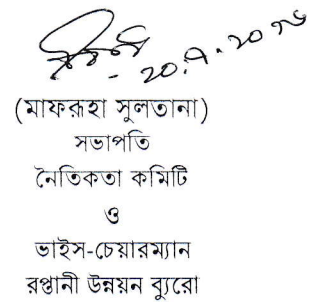 (মাফরূহা সুলতানা)
সভাপতি
নৈতিকতা কমিটি
ও
ভাইস-চেয়ারম্যান
রপ্তানী উন্নয়ন ব্যুরো